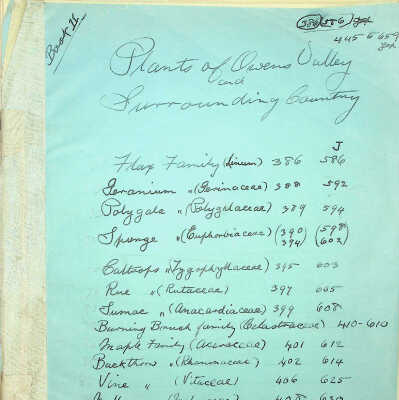 Book II
386 586
445 & 659
Plants of Owens Valley
and
Surrounding Country
J
Flax Family (Linum) 386 586
Geranium " (Gerinaceae) 388 592
Polygala " (Polygalaceae) 389 594
Spurge " (Euphorbiaceae) (390 (598
394) (602)
Caltrops " Zygophyllaceae) 395 603
Rue " (Rutaceae) 397 605
Sumac " (Anacardiaceae) 399 608
Burning Brush family (Celastraceae) 410-610
Maple Family (Aceraceae) 401 612
Backthorn " (Rhamnaceae) 402 614
Vine " (Vitaceae) 406 625
408 630